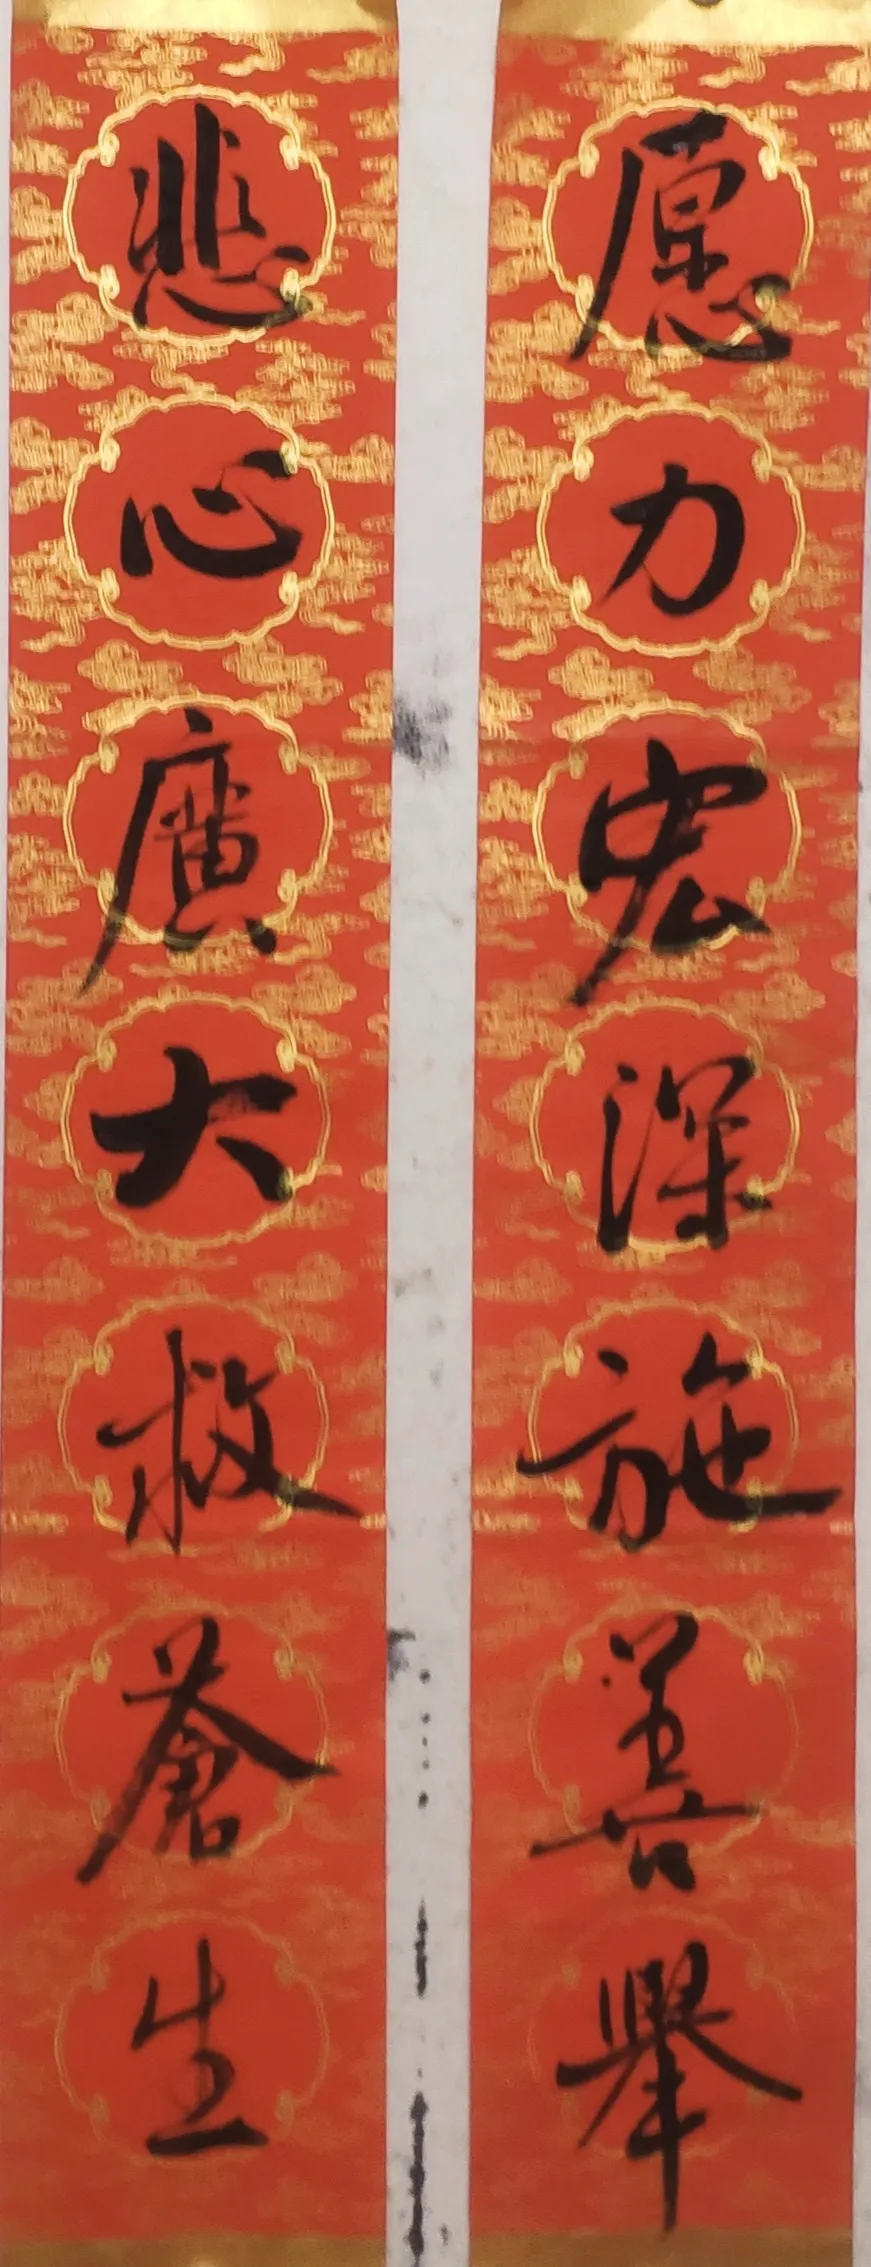 愿力宏深施善舉
悲心廣大救蒼生